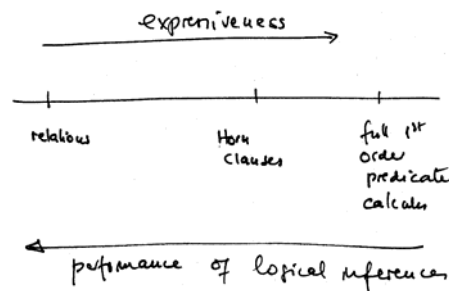 expressiveness
relations
Horn
Clauses
full 1st
order
predicate
calculus
performance of logical inferences